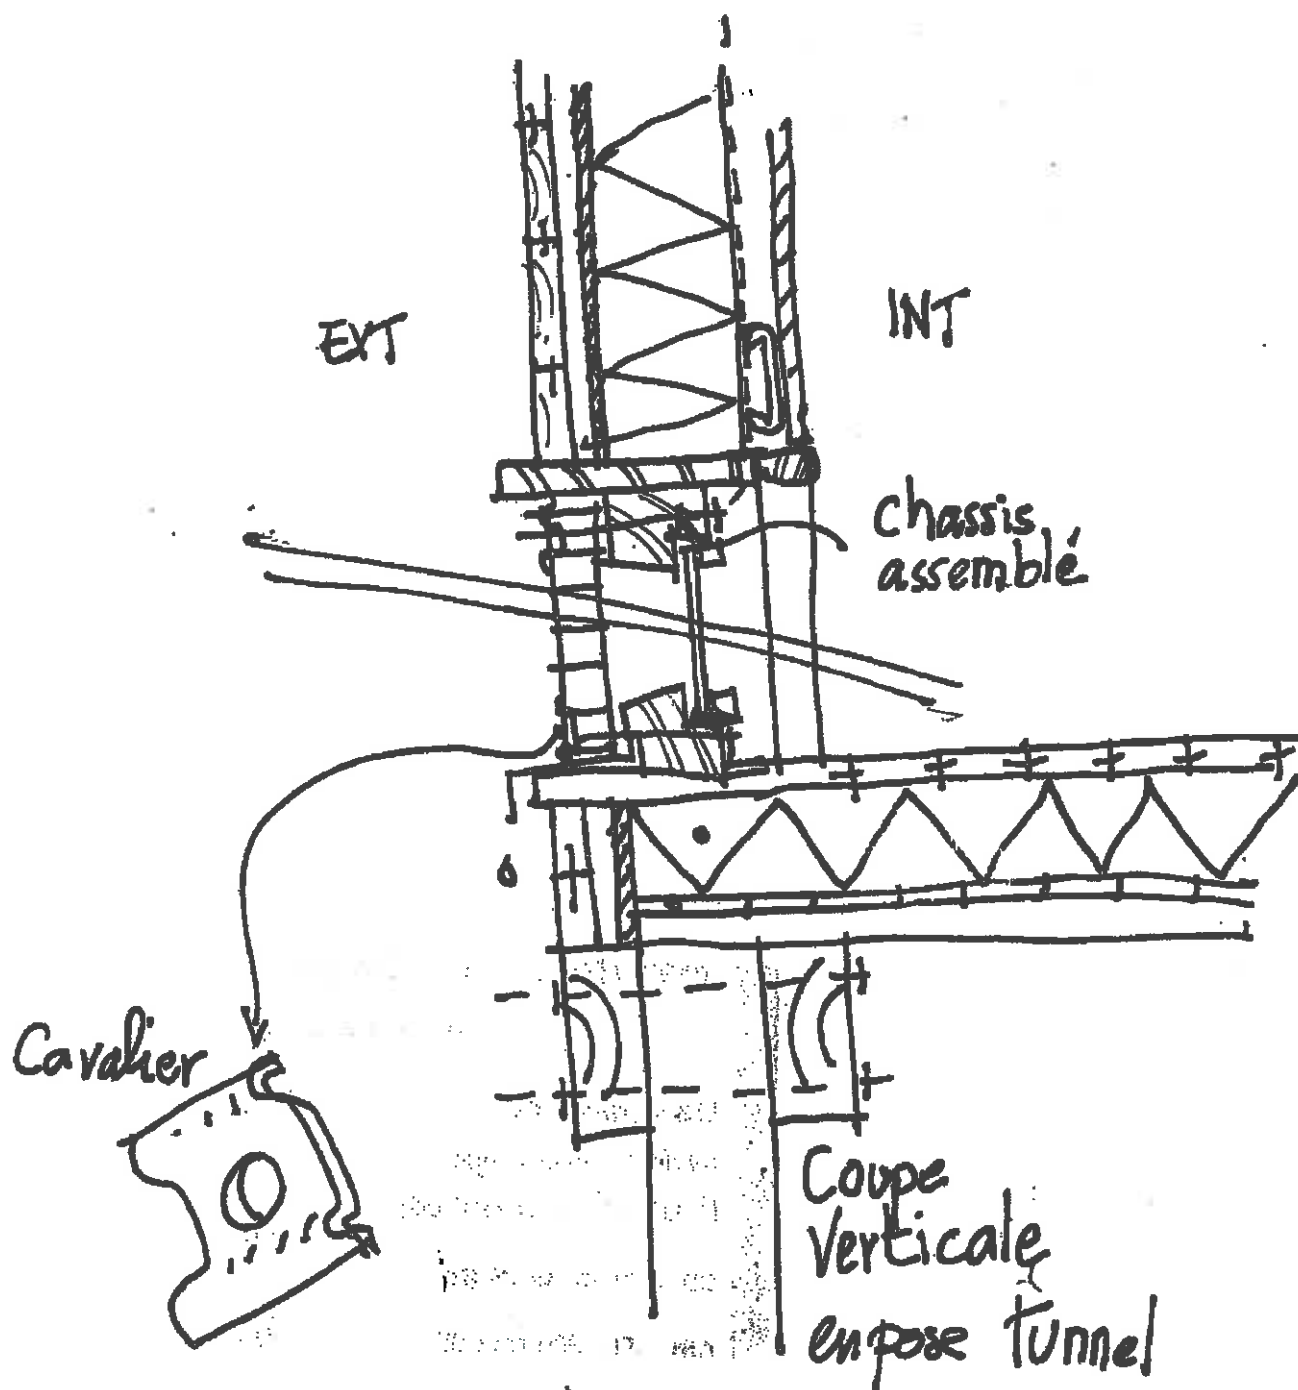 EXT
INT
Chassis
assemblé
Cavalier
Coupe
Verticale
en pose tunnel